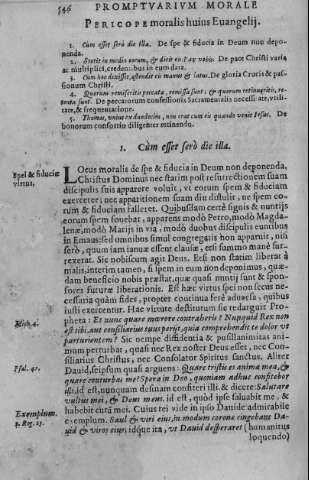 546 PROMPTVARIVM MORALE
PERICOPE moralis huius Euangelij.
1. Cùm esset serò die illa. De spe & fiducia in Deum non depo-
nenda.
2. Stetit in medio eorum, & dicit eis Pax vobis. De pace Christi varia
ac multiplici, credentibus in eum data.
3. Cùm hoc dixisset, ostendit eis manus & latus. De gloria Crucis & pas-
sionum Christi.
4. Quorum remiseritis peccata, remissa sunt: & quorum retinueritis, re-
tenta sunt. De peccatorum confessionis Sacramentalis necessitate, vtili-
tate, & frequentatione.
5. Thomas, vnus ex duodecim, non erat cum eis quando venit Iesus. De
bonorum consortio diligenter retinendo.
1. Cùm esset serò die illa.
Spei & fiduciæ
virtus.
LOcus moralis de spe & fiducia in Deum non deponenda,
Christus Dominus nec statim post resurrectionem suam
discipulis suis apparere voluit, vt eorum spem & fiduciam
exerceret; nec apparitionem suam diu distulit, ne spem eo-
rum & fiduciam falleret. Quibusdam certè signis & nuntijs
eorum spem fouebat, apparens modò Petro, modò Magda-
lenæ, modò Marijs in via, modò duobus discipulis euntibus
in Emaus: sed omnibus simul congregatis non apparuit, nisi
serò, quum iam ianuæ essent clausæ: etsi summo manè sur-
rexerat. Sic nobiscum agit Deus. Etsi non statim liberat à
malis, interim tamen, si spem in eum non deponimus, quæ-
dam beneficio nobis præstat, quæ quasi nuntij sunt & spon-
sores futuræ liberationis. Est hæc virtus spei non secus ne-
cessaria quàm fides, propter continua ferè aduersa, quibus
iusti exercentur. Hac virtute destitutum se redarguit Pro-
Mich. 4.
pheta: Et nunc quare mœrore contraheris? Nunquid Rex non
est tibi, aut consiliarius tuus perijt, quia comprehendit te dolor vt
parturientem? Sic nempe diffidentia & pusillanimitas ani-
mum perturbat, quasi nec Rex noster Deus esset, nec Con-
siliarius Christus, nec Consolator Spiritus sanctus. Aliter
Psal. 42.
Dauid, seipsum quasi arguens: Quare tristis es anima mea, &
quare conturbas me? Spera in Deo, quoniam adhuc confitebor
illi: id est, nunquam desinam confiteri illi, & dicere: Salutare
vultus mei, & Deus meus. id est, quòd ipse saluabit me, &
habebit curâ mei. Cuius rei vide in ipso Dauide admirabile
Exemplum.
1. Reg. 23.
exemplum. Saul & viri eius, in modum coronæ cingebant Da-
uid & viros eius, idque ita, vt Dauid desperaret (humanitus
loquendo)